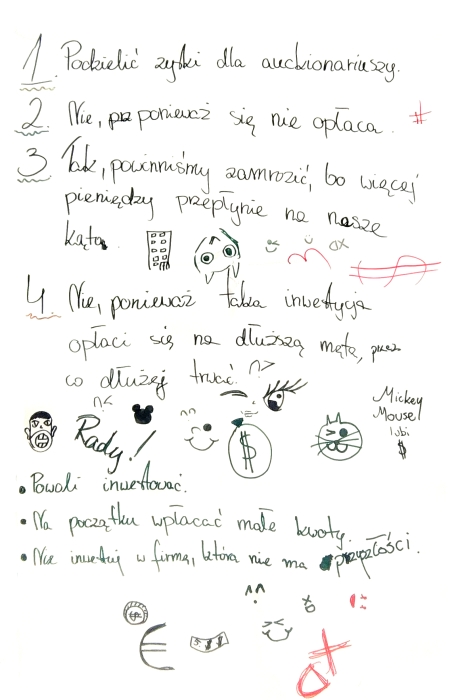 1. Podzielić zyski dla auckionariuszy.
2. Nie, ponieważ się nie opłaca. #
3. Tak, powinniśmy zamrozić, bo więcej
pieniędzy przepłynie na nasze
kąta.
4. Nie, ponieważ taka inwestycja
opłaci się na dłuższą metę, przez
co dłużej trwać.
Mickey
Mouse!
lubi
$
Rady!
$
• Powoli inwestować.
• Na początku wpłacać małe kwoty.
• Nie inwestuj w firmą, która nie ma przyszłości.
$
€
$ $ $